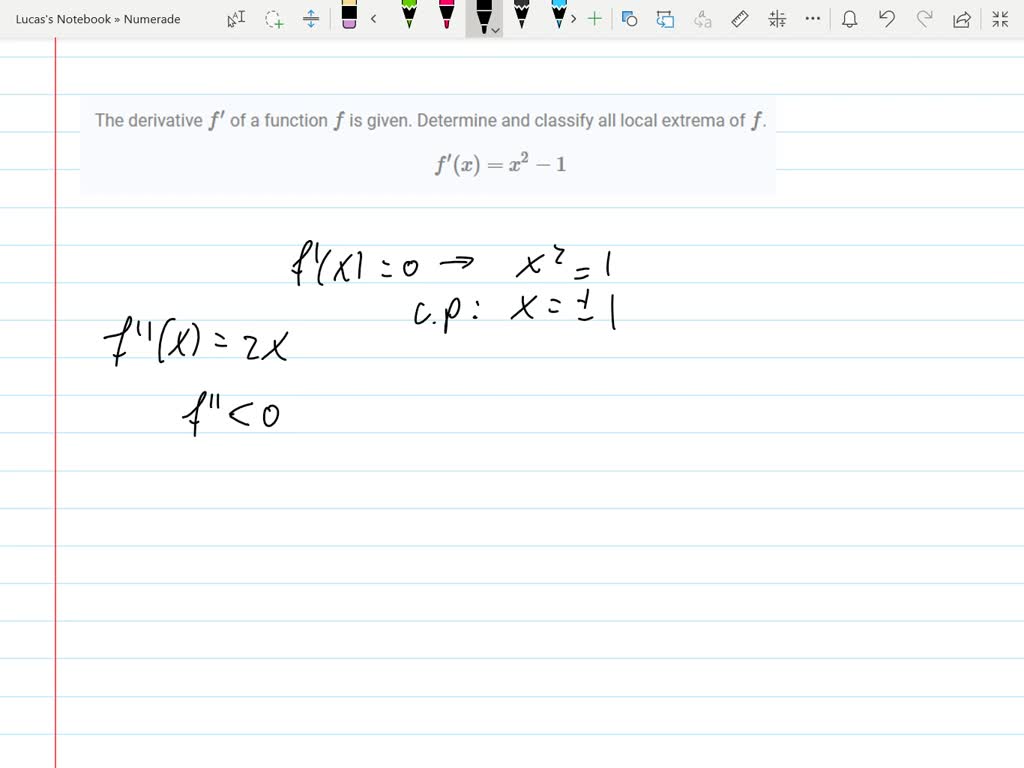 Lucas's Notebook » Numerade
The derivative f′ of a function f is given. Determine and classify all local extrema of f.
f′(x) = x² − 1
f'(x) = 0 → x² = 1
c.p: x = ± 1
f''(x) = 2x
f'' < 0